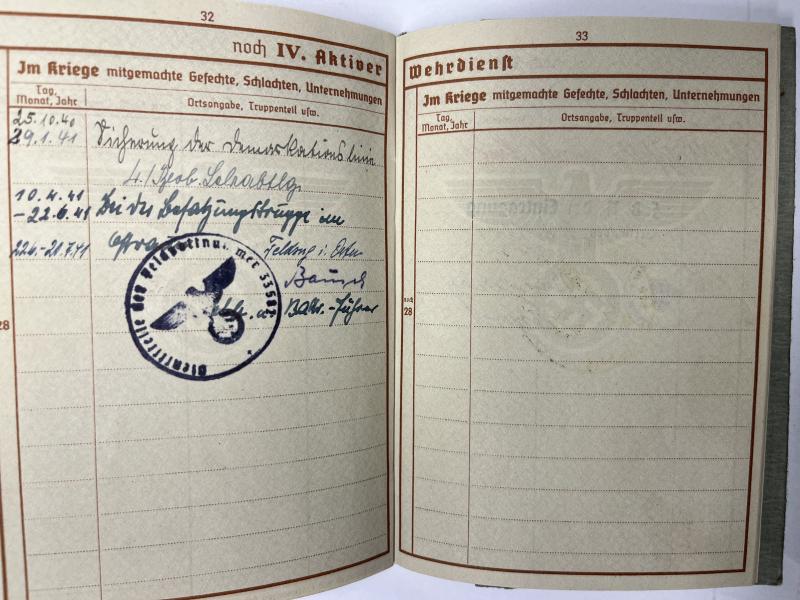 32
noch IV. Aktiver
Im Kriege mitgemachte Gefechte, Schlachten, Unternehmungen
Tag, Monat, Jahr
Ortsangabe, Truppenteil usw.
25.10.40
29.1.41 Sicherung der Demarkationslinie
4./Beob. Lehrabtlg.
10.4.41
-22.6.41 Bei der Besatzungstruppe im
22.6.-28.7.41 Feldzug i. Osten
u. Battr.-Führer
Dienststelle der Feldpostnummer 33587
28
33
Wehrdienst
Im Kriege mitgemachte Gefechte, Schlachten, Unternehmungen
Tag, Monat, Jahr
Ortsangabe, Truppenteil usw.
noch
28